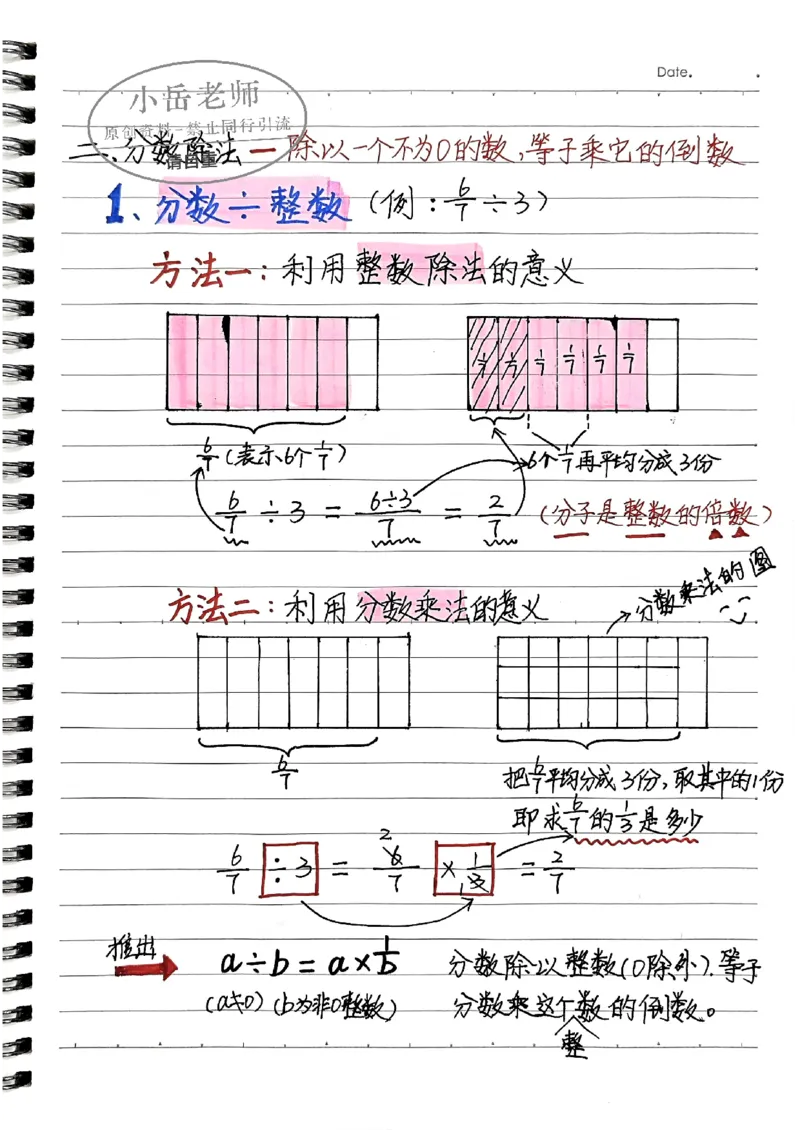 Date.
小岳老师
原创资料-禁止同行引流
请自重
二、分数除法—除以一个不为0的数,等子乘它的倒数
1、分数÷整数(例:6/7÷3)
方法一:利用整数除法的意义
1/7 1/7 1/7 1/7 1/7 1/7
6/7(表示6个1/7) 6个1/7再平均分成3份
6/7÷3=6÷3/7=2/7(分子是整数的倍数)
方法二:利用分数乘法的意义 →分数乘法的图
6/7
把6/7平均分成3份,取其中的1份
即求6/7的1/3是多少
6/7÷3=6/7×1/3=2/7
2 1
推出 a÷b=a×1/b 分数除以整数(0除外).等子
(a≠0)(b为非0整数) 分数乘这个整数的倒数。